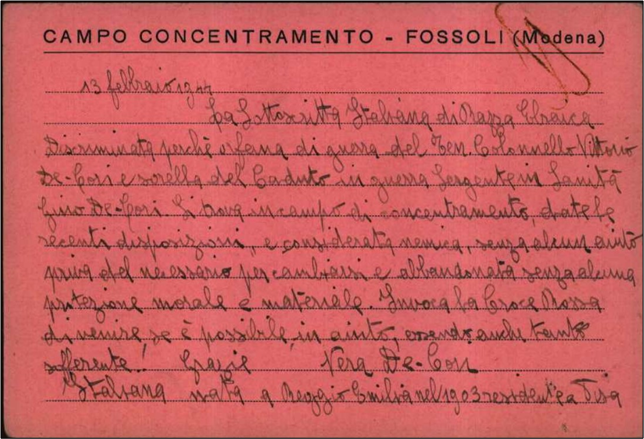 CAMPO CONCENTRAMENTO - FOSSOLI (Modena)
13 febbraio 1944
La Sottoscritta Italiana di Razza Ebraica
Discriminata perchè orfana di guerra del Ten. Colonnello Vittorio
De-Cori e sorella del Caduto in guerra Sergente in Sanità
Gino De-Cori si trova in campo di concentramento date le
recenti disposizioni, e considerata nemica, senza alcun aiuto
priva del necessario per cambiarsi e abbandonata senza alcuna
protezione morale e materiale. Invoca la Croce Rossa
di venire se è possibile, in aiuto, essendo anche tanto
sofferente! Grazie Vera De-Cori
Italiana nata a Reggio Emilia nel 1903 residente a Pisa